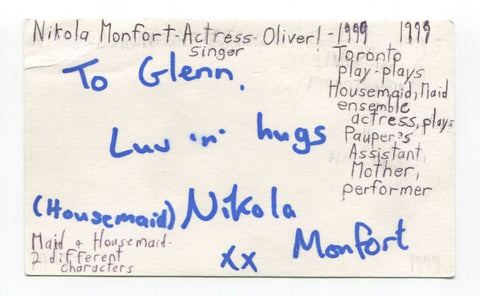 Nikola Monfort-Actress-Oliver! - 1999 1999
singer
Toronto
play-plays
Housemaid, Maid
ensemble
actress, plays
Pauper's
Assistant,
Mother,
performer
To Glenn,
Luv 'n' hugs
(Housemaid) Nikola
Monfort
xx
Maid & Housemaid-
2 different
characters